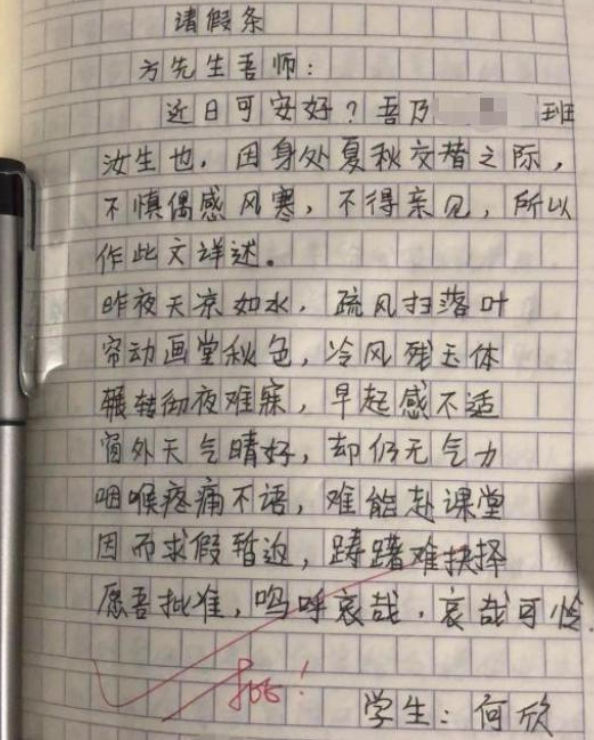 请假条
方先生吾师：
近日可安好？吾乃 班
汝生也，因身处夏秋交替之际，
不慎偶感风寒，不得亲见，所以
作此文详述。
昨夜天凉如水，疏风扫落叶
帘动画堂秋色，冷风残玉体
辗转彻夜难寐，早起感不适
窗外天气晴好，却仍无气力
咽喉疼痛不语，难能赴课堂
因而求假暂返，踌躇难抉择
愿吾批准，呜呼哀哉，哀哉可怜
批！
学生：何欣